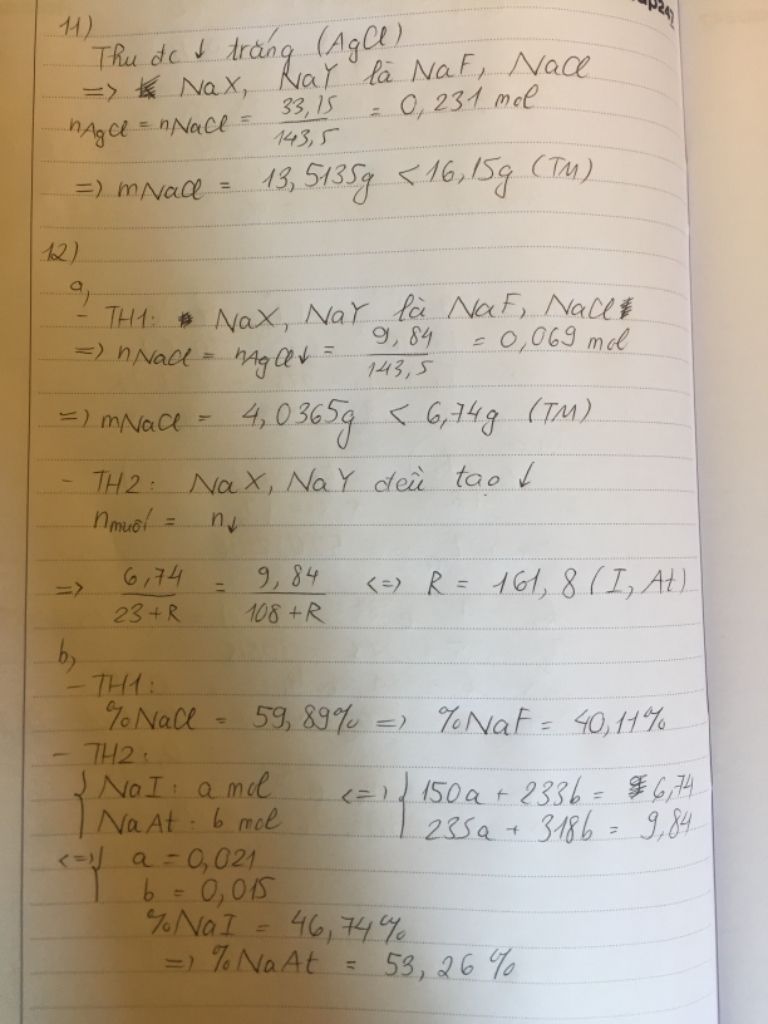 11)
Thu đc ↓ trắng (AgCl)
=> NaX, NaY là NaF, NaCl
nAgCl = nNaCl = 33,15/143,5 = 0,231 mol
=> mNaCl = 13,5135g < 16,15g (TM)
12)
a,
- TH1: NaX, NaY là NaF, NaCl
=> nNaCl = nAgCl↓ = 9,84/143,5 = 0,069 mol
=> mNaCl = 4,0365g < 6,74g (TM)
- TH2: NaX, NaY đều tạo ↓
nmuối = n↓
=> 6,74/23+R = 9,84/108+R <=> R = 161,8 (I, At)
b,
- TH1:
%NaCl = 59,89% => %NaF = 40,11%
- TH2:
{ NaI: a mol <=> { 150a + 233b = 6,74
NaAt: b mol 235a + 318b = 9,84
<=> { a = 0,021
b = 0,015
%NaI = 46,74%
=> %NaAt = 53,26%